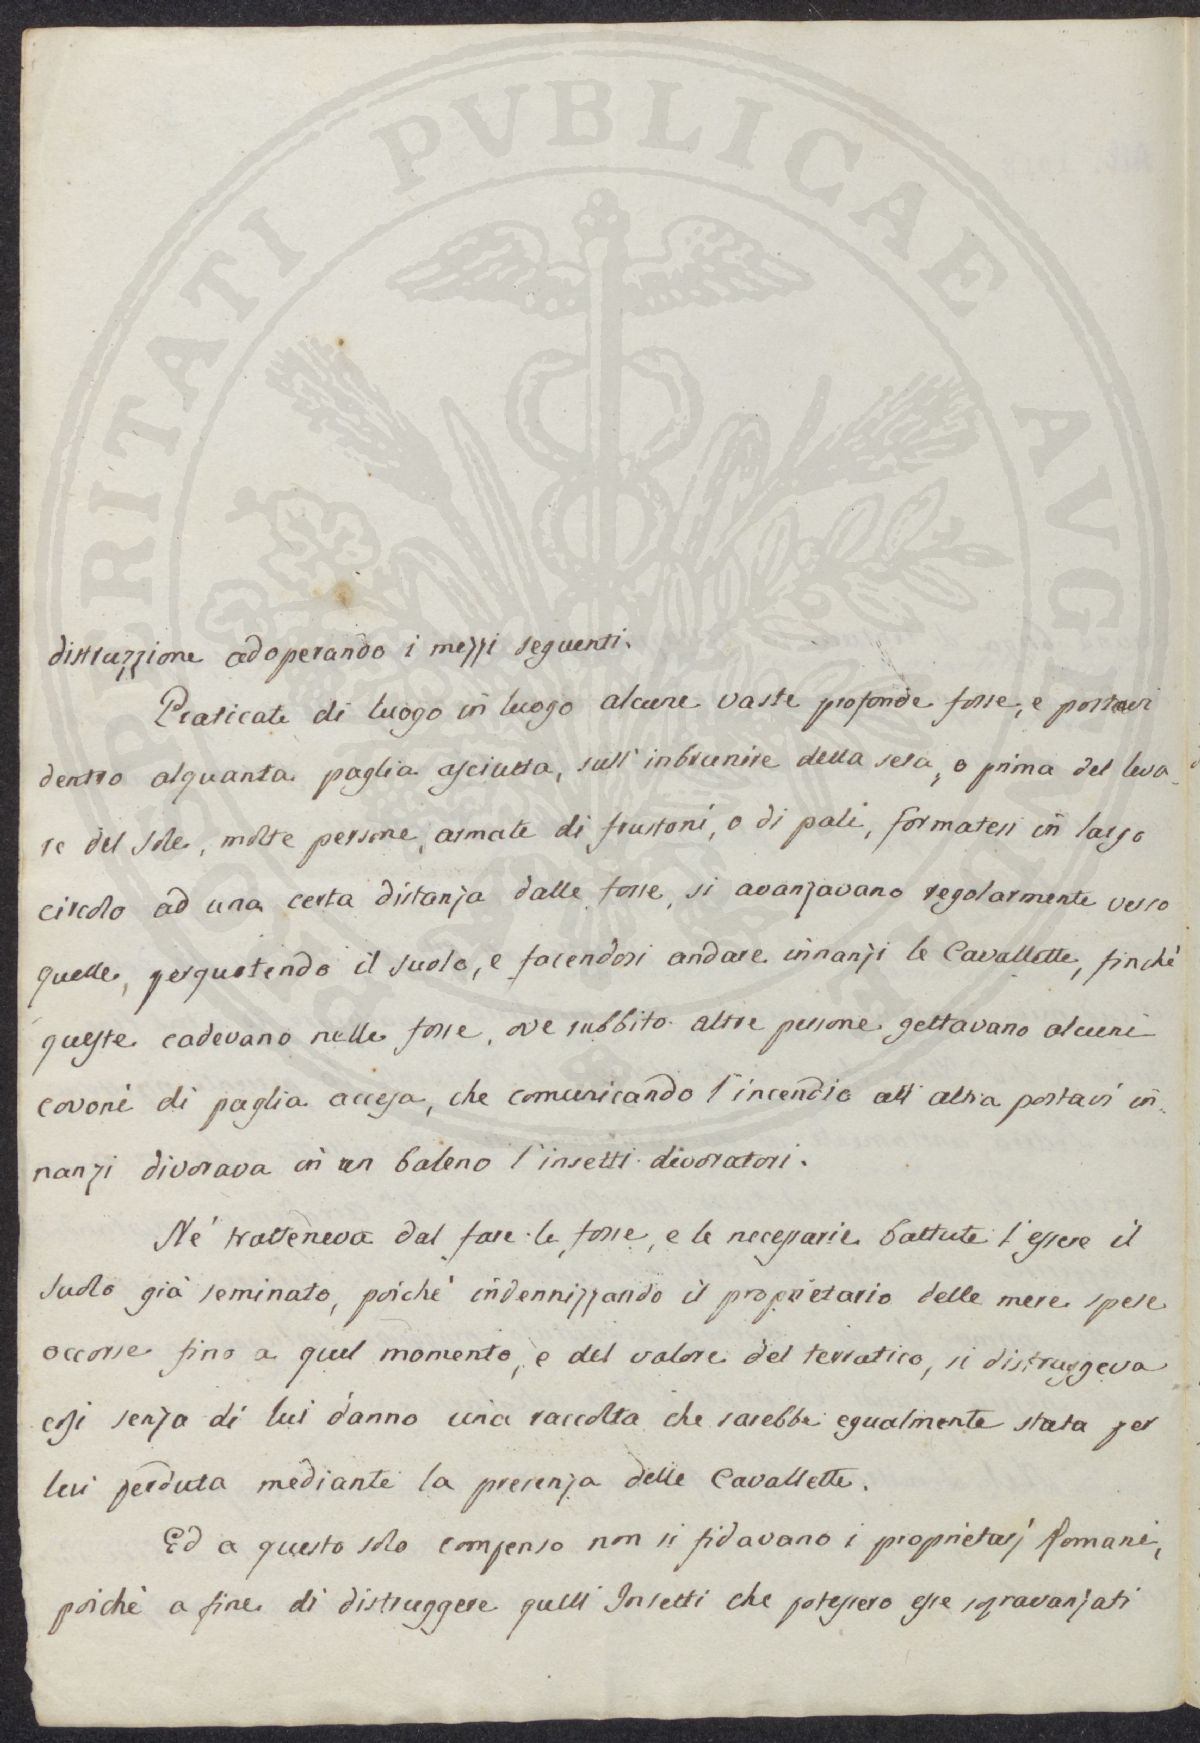 PROSPERITATI PVBLICAE AVGENDAE
distruzzione adoperando i mezzi seguenti.
Praticate di luogo in luogo alcune vaste profonde fosse, e postavi
dentro alquanta paglia asciutta, sull'inbrunire della sera, o prima del leva-
re del Sole, molte persone, armate di frustoni, o di pali, formatesi in largo
circolo ad una certa distanza dalle fosse, si avanzavano regolarmente verso
quelle, perquotendo il suolo, e facendosi andare innanzi le Cavallette, finchè
queste cadevano nelle fosse, ove subbito altre persone gettavano alcuni
covoni di paglia accesa, che comunicando l'incendio all'altra postavi in-
nanzi divorava in un baleno l'insetti divoratori.
Nè tratteneva dal fare le fosse, e le necessarie battute l'essere il
suolo già seminato, poichè indennizzando il proprietario delle mere spese
occorse fino a quel momento, e del valore del terratico, si distruggeva
così senza di lui danno una raccolta che sarebbe egualmente stata per
lui perduta mediante la presenza delle Cavallette.
Ed a questo solo compenso non si fidavano i proprietarj Romani,
poichè a fine di distruggere quelli Insetti che potessero esse sopravanzati